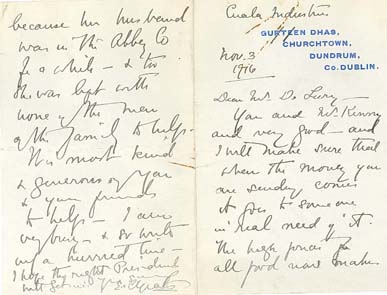 Cuala Industries
GURTEEN DHAS,
CHURCHTOWN,
DUNDRUM,
Co. DUBLIN.
Nov. 3
1916
Dear Mr. De Lury -
You and Mr. Kenny
are very good - and
I will make sure that
when the money you
are sending comes
it goes to someone
in real need of it.
The high prices for
all food now makes
because her husband
was in the Abbey Co
for a while - & too
she was left with
none of the men
of the family to help -
It is most kind
& generous of you
& your friends
to help - I am
very busy - & so write
in a hurried time -
I hope the right President
will get in